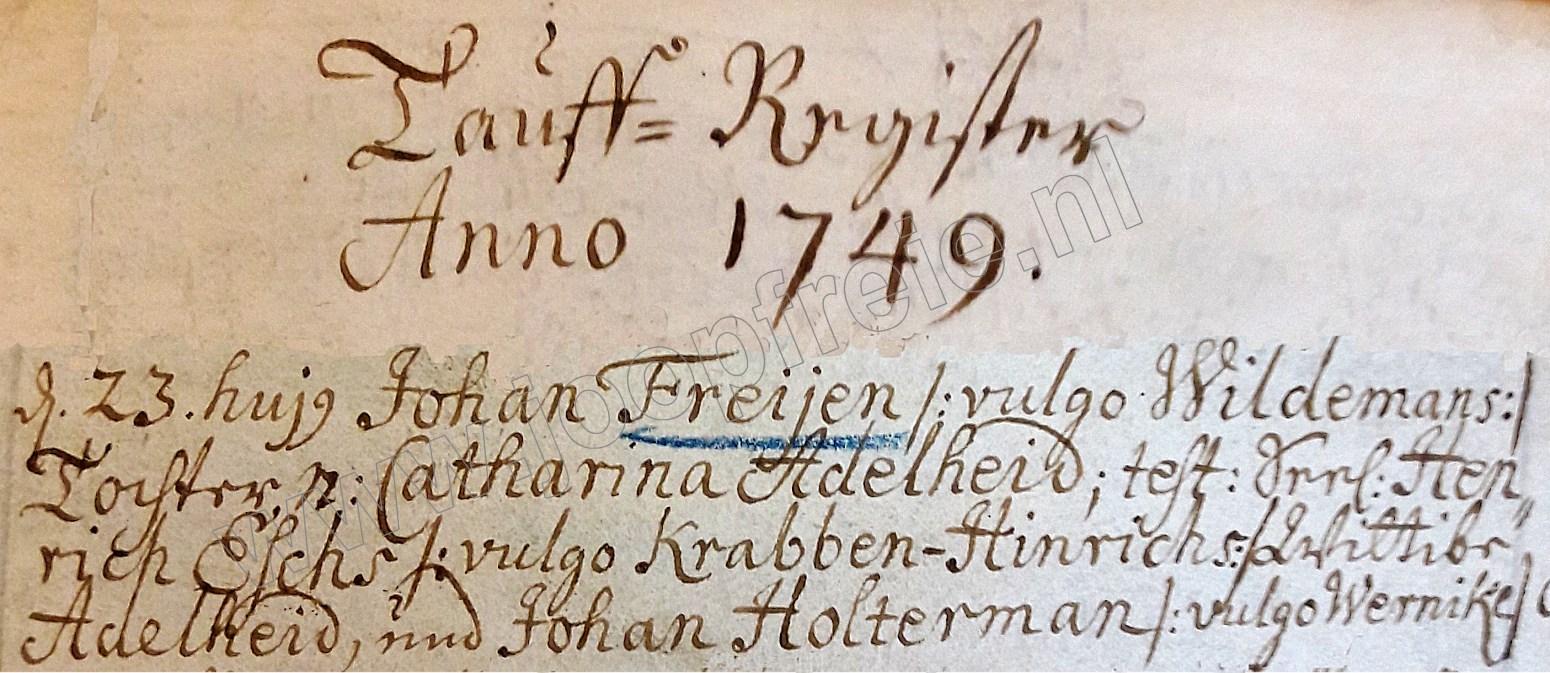 Tauff= Register
Anno 1749.
d. 23. hujg Johan Freijen /: vulgo Wildemans:/
Tochter, n: Catharina Adelheid; test: Seel: Hen„
rich Eschs /: vulgo Krabben-Hinrichs:/ Wittibe
Adelheid, und Johan Holterman /: vulgo Wernike/
www.joopfreie.nl